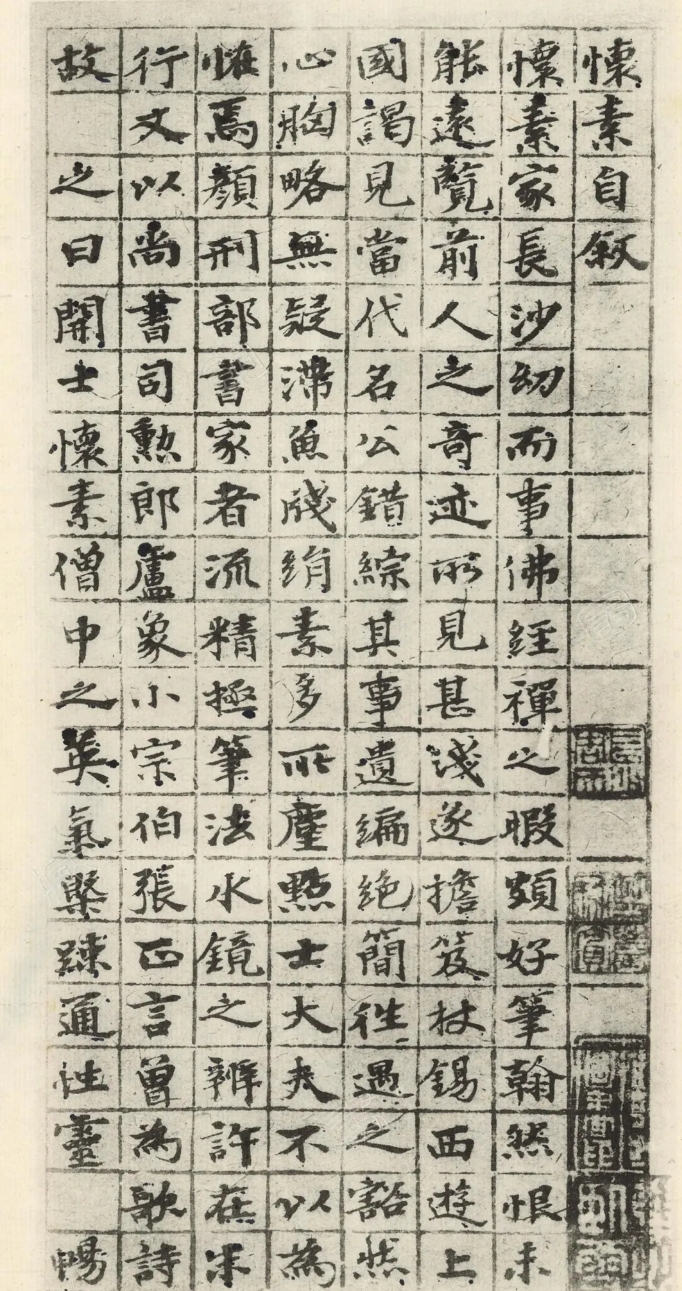 懷素自叙
懷素家長沙幼而事佛經禪之暇頗好筆翰然恨未
能遠覽前人之奇迹所見甚淺遂擔笈杖錫西遊上
國謁見當代名公錯綜其事遺編絶簡徃遇之豁然
心胸略無疑滯魚牋絹素多所塵點士大夫不以為
恠焉顔刑部書家者流精極筆法水鏡之辨許在末
行又以尚書司勲郎盧象小宗伯張正言曾為歌詩
故之曰開士懷素僧中之英氣槩踈通性靈暢